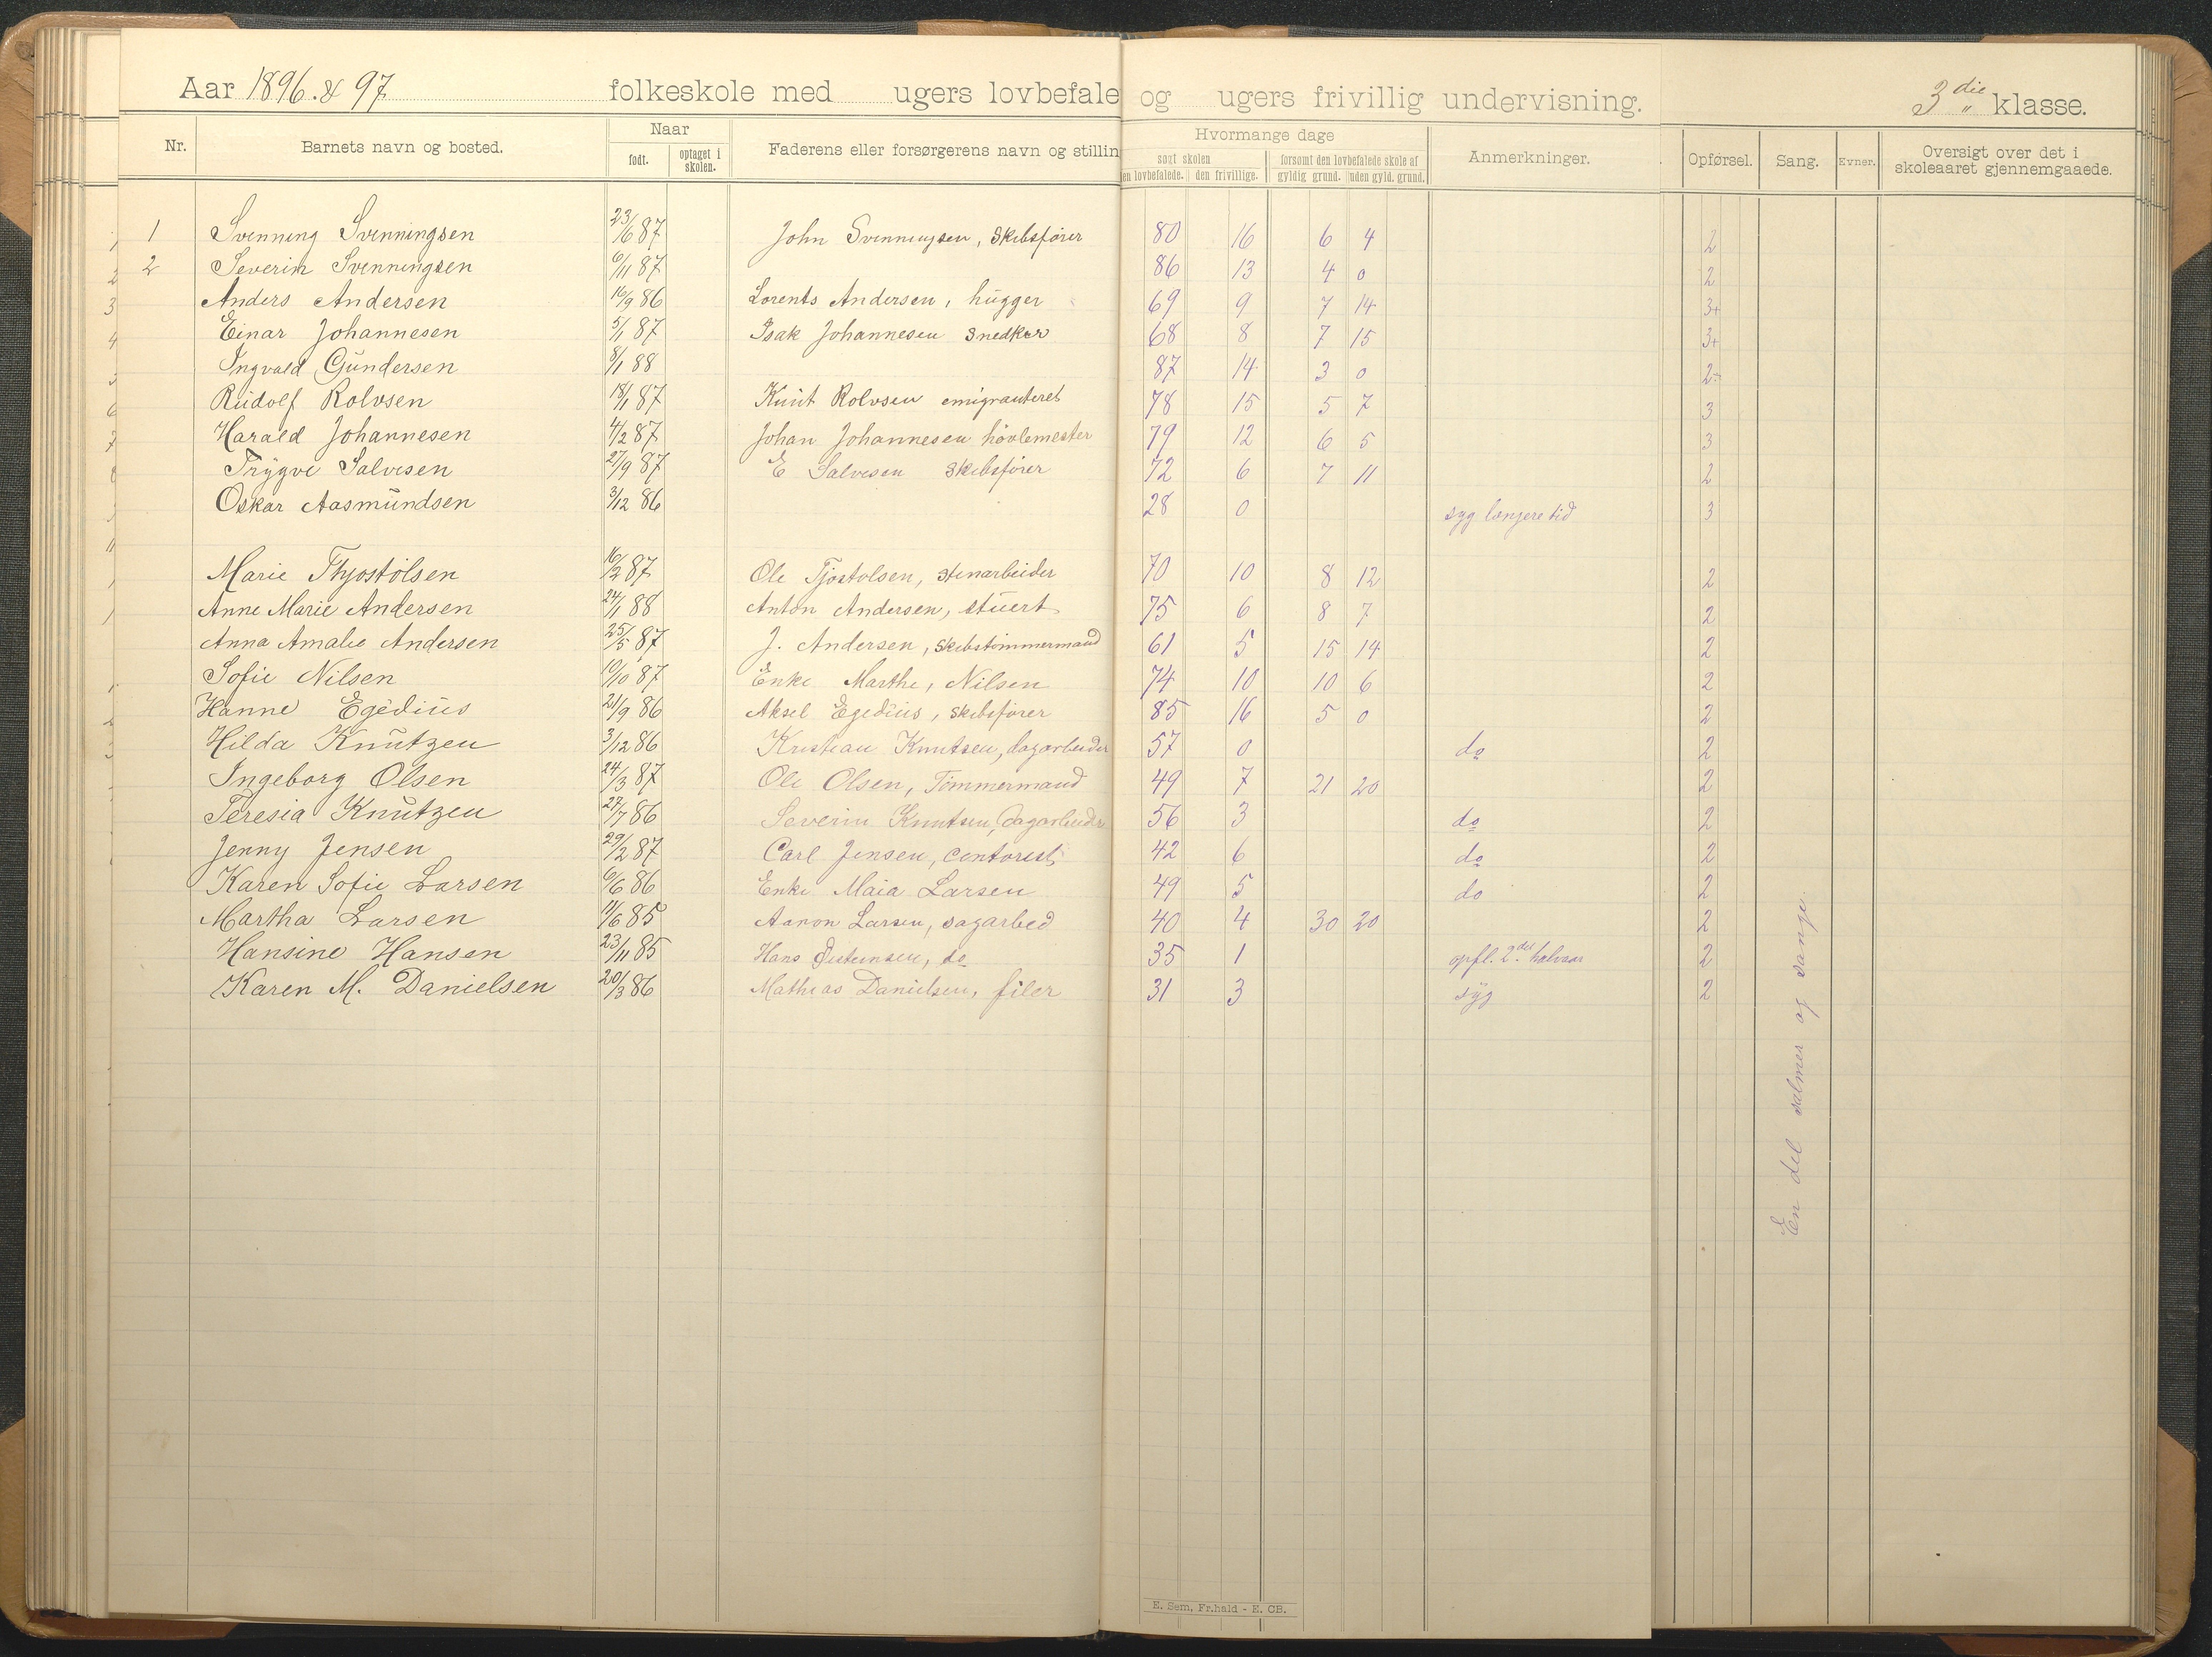 Aar 1896 & 97 folkeskole med ugers lovbefale og ugers frivillig undervisning. 3die klasse.
Nr. Barnets navn og bosted. Naar født. optaget i skolen. Faderens eller forsørgerens navn og stillin Hvormange dage søgt skolen en lovbefalede. den frivillige. forsømt den lovbefalede skole af gyldig grund. uden gyld. grund. Anmerkninger. Opførsel. Sang. Evner. Oversigt over det i skoleaaret gjennemgaaede.
1 Svenning Svenningsen 23/6 87 John Svenningsen, Skibsfører 80 16 6 4 2
2 Severin Svenningsen 6/11 87 86 13 4 0 2
Anders Andersen 16/9 86 Lorents Andersen, hugger 69 9 7 14 3+
Einar Johannesen 5/1 87 Isak Johannesen Snedker 68 8 7 15 3+
Ingvald Gundersen 8/1 88 87 14 3 0 2÷
Rudolf Rolvsen 18/1 87 Knut Rolvsen emigranteret 78 15 5 7 3
Harald Johannesen 4/2 87 Johan Johannesen høvlemester 79 12 6 5 3
Trygve Salvesen 27/9 87 E Salvesen Skibsfører 72 6 7 11 2
Oskar Aasmundsen 3/12 86 28 0 syg længere tid 3
Marie Thjostolsen 16/2 87 Ole Tjostolsen, stenarbeider 70 10 8 12 2
Anne Marie Andersen 24/1 88 Anton Andersen, stuert 75 6 8 7 2
Anna Amalie Andersen 25/5 87 J. Andersen, skibstømmermand 61 5 15 14 2
Sofie Nilsen 10/10 87 Enke Marthe, Nilsen 74 10 10 6 2
Hanne Egedius 21/9 86 Aksel Egedius, skibsfører 85 16 5 0 2
Hilda Knutzen 3/12 86 Kristian Knutsen, dagarbeider 57 0 do 2
Ingeborg Olsen 24/3 87 Ole Olsen, Tømmermand 49 7 21 20 2
Teresia Knutzen 27/7 86 Severin Knutsen, Dagarbeider 56 3 do 2
Jenny Jensen 29/2 87 Carl Jensen, contorist 42 6 do 2
Karen Sofie Larsen 6/6 86 Enke Maia Larsen 49 5 do 2
Martha Larsen 11/6 85 Aanon Larsen, sagarbed 40 4 30 20 2
Hansine Hansen 23/11 85 Hans do 35 1 opfl. 2det halvaar 2
Karen M. Danielsen 20/3 86 Mathias Danielsen, filer 31 3 syg 2
En del salmer og sange.
E. Sem, Fr.hald - E. CB.